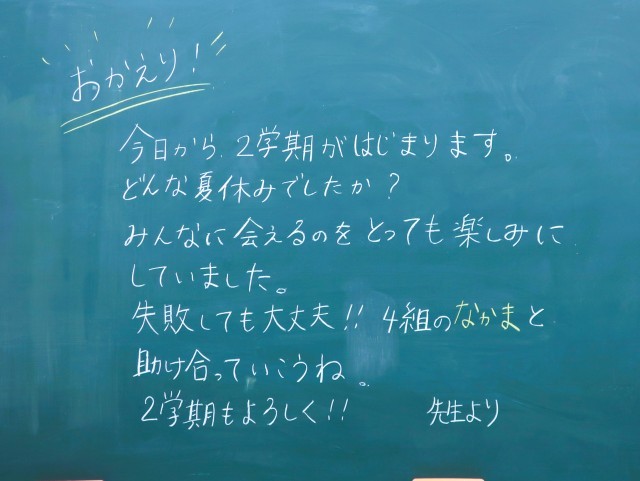 おかえり!
今日から、2学期がはじまります。
どんな夏休みでしたか?
みんなに会えるのをとっても楽しみに
していました。
失敗しても大丈夫!! 4組のなかまと
助け合っていこうね。
2学期もよろしく!! 先生より